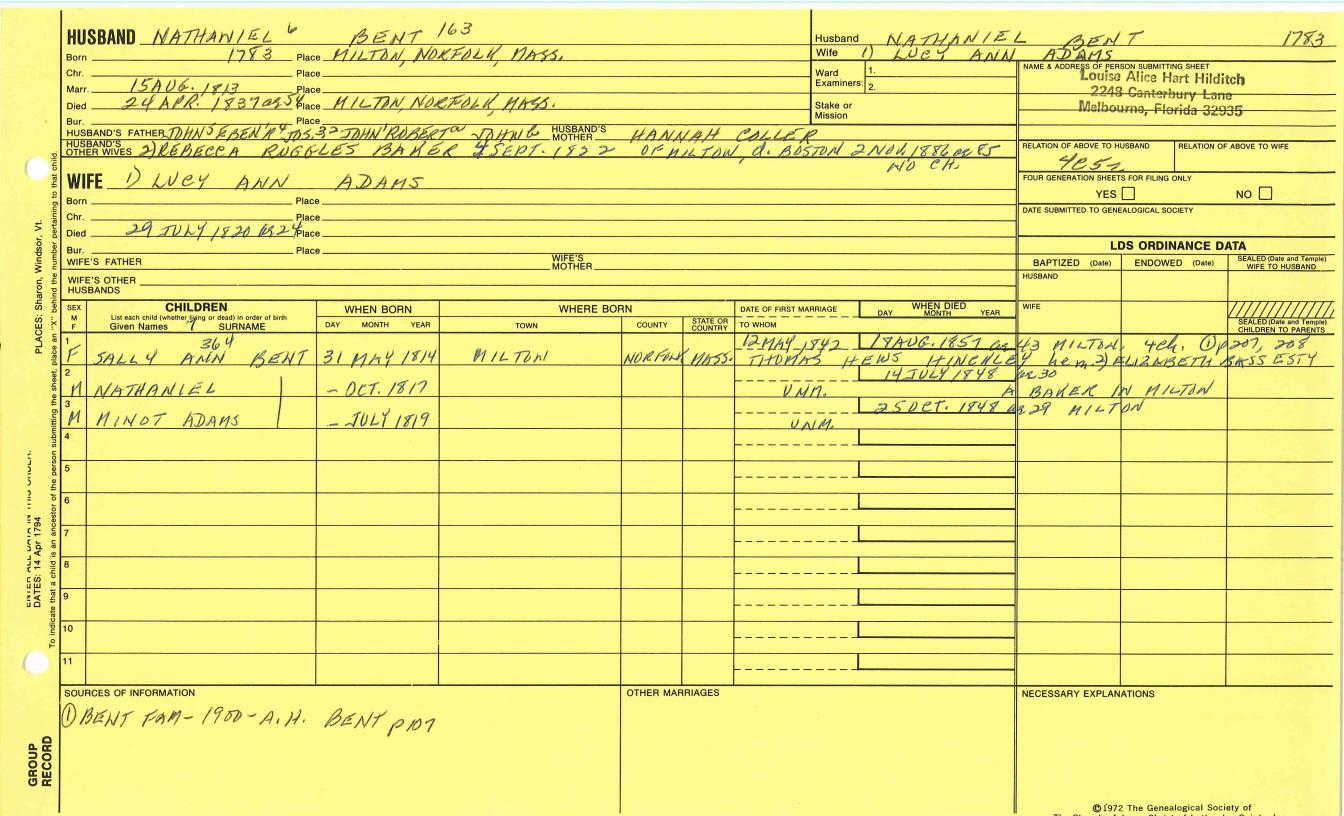 HUSBAND NATHANIEL 6 BENT 163
Born 1783 Place MILTON, NORFOLK, MASS.
Chr. Place
Marr. 15 AUG. 1813 Place
Died 24 APR. 1837 ag 54 Place MILTON, NORFOLK, MASS.
Bur. Place
HUSBAND'S FATHER JOHN 5 EBEN'R 4 JOS. 3 2 JOHN ROBERT JOHN HUSBAND'S MOTHER HANNAH COLLER
HUSBAND'S OTHER WIVES 2) REBECCA RUGGLES BAKER SEPT. 1822 OF MILTON, d. BOSTON 2 NOV. 1886 ag 85
NO CH.
Husband NATHANIEL BENT 1783
Wife 1) LUCY ANN ADAMS
Ward Examiners: 1.
2.
Stake or Mission
NAME & ADDRESS OF PERSON SUBMITTING SHEET
Louise Alice Hart Hilditch
2248 Canterbury Lane
Melbourne, Florida 32935
RELATION OF ABOVE TO HUSBAND RELATION OF ABOVE TO WIFE
4C5r
FOUR GENERATION SHEETS FOR FILING ONLY
YES NO
DATE SUBMITTED TO GENEALOGICAL SOCIETY
WIFE 1) LUCY ANN ADAMS
Born Place
Chr. Place
Died 29 JULY 1820 ag 24 Place
Bur. Place
WIFE'S FATHER WIFE'S MOTHER
WIFE'S OTHER HUSBANDS
LDS ORDINANCE DATA
BAPTIZED (Date) ENDOWED (Date) SEALED (Date and Temple) WIFE TO HUSBAND
HUSBAND
WIFE
SEALED (Date and Temple) CHILDREN TO PARENTS
SEX M F
CHILDREN
List each child (whether living or dead) in order of birth
Given Names 7 SURNAME
WHEN BORN
DAY MONTH YEAR
WHERE BORN
TOWN COUNTY STATE OR COUNTRY
DATE OF FIRST MARRIAGE
TO WHOM
WHEN DIED
DAY MONTH YEAR
1 364 12 MAY 1842 18 AUG. 1857 ag 43 MILTON. 4 ch. ① p207, 208
F SALLY ANN BENT 31 MAY 1814 MILTON NORFOLK MASS. THOMAS HEWS HINCKLEY he m. 2) ELIZABETH BASS ESTY
2 14 JULY 1848 ag 30
M NATHANIEL – OCT. 1817 UNM. A BAKER IN MILTON
3 25 OCT. 1848 ag 29 MILTON
M MINOT ADAMS – JULY 1819 UNM.
4
5
6
7
8
9
10
11
SOURCES OF INFORMATION
① BENT FAM - 1900 - A.H. BENT p107
OTHER MARRIAGES
NECESSARY EXPLANATIONS
©1972 The Genealogical Society of
PLACES: Sharon, Windsor, Vt.
DATES: 14 Apr 1794
To indicate that a child is an ancestor of the person submitting the sheet, place an "X" behind the number pertaining to that child.
GROUP RECORD